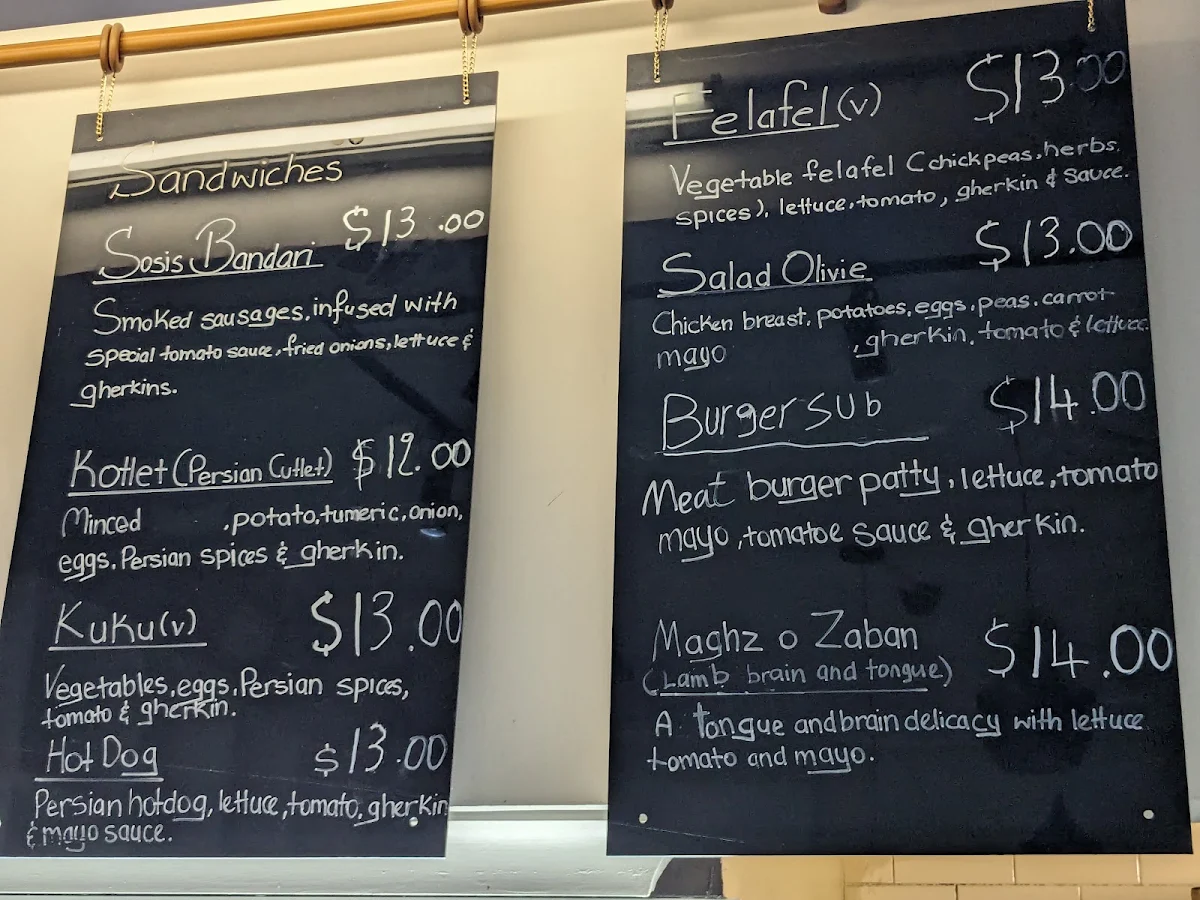 Sandwiches
Sosis Bandari $13.00
Smoked sausages, infused with
special tomato sauce, fried onions, lettuce &
gherkins.
Kotlet (Persian Cutlet) $12.00
Minced , potato, tumeric, onion,
eggs, Persian spices & gherkin.
Kuku (v) $13.00
Vegetables, eggs, Persian spices,
tomato & gherkin.
Hot Dog $13.00
Persian hotdog, lettuce, tomato, gherkin
& mayo sauce.
Felafel (v) $13.00
Vegetable felafel (chickpeas, herbs,
spices), lettuce, tomato, gherkin & sauce.
Salad Olivie $13.00
Chicken breast, potatoes, eggs, peas, carrot
mayo , gherkin, tomato & lettuce
Burger sub $14.00
Meat burger patty, lettuce, tomato
mayo, tomatoe sauce & gherkin.
Maghz o Zaban $14.00
(Lamb brain and tongue)
A tongue and brain delicacy with lettuce
tomato and mayo.